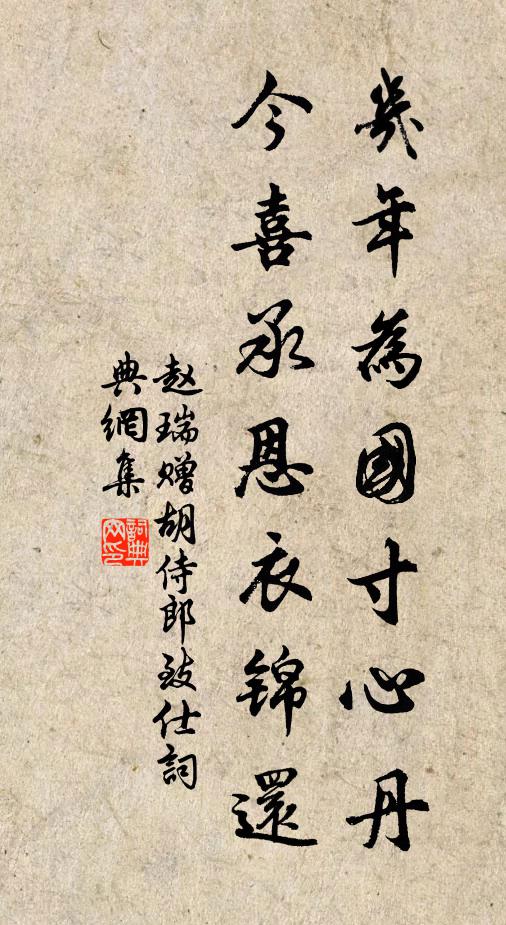 幾年為國寸心丹
今喜承恩衣錦還
赵瑞赠胡侍郎致仕詞
典網集
詞典網印